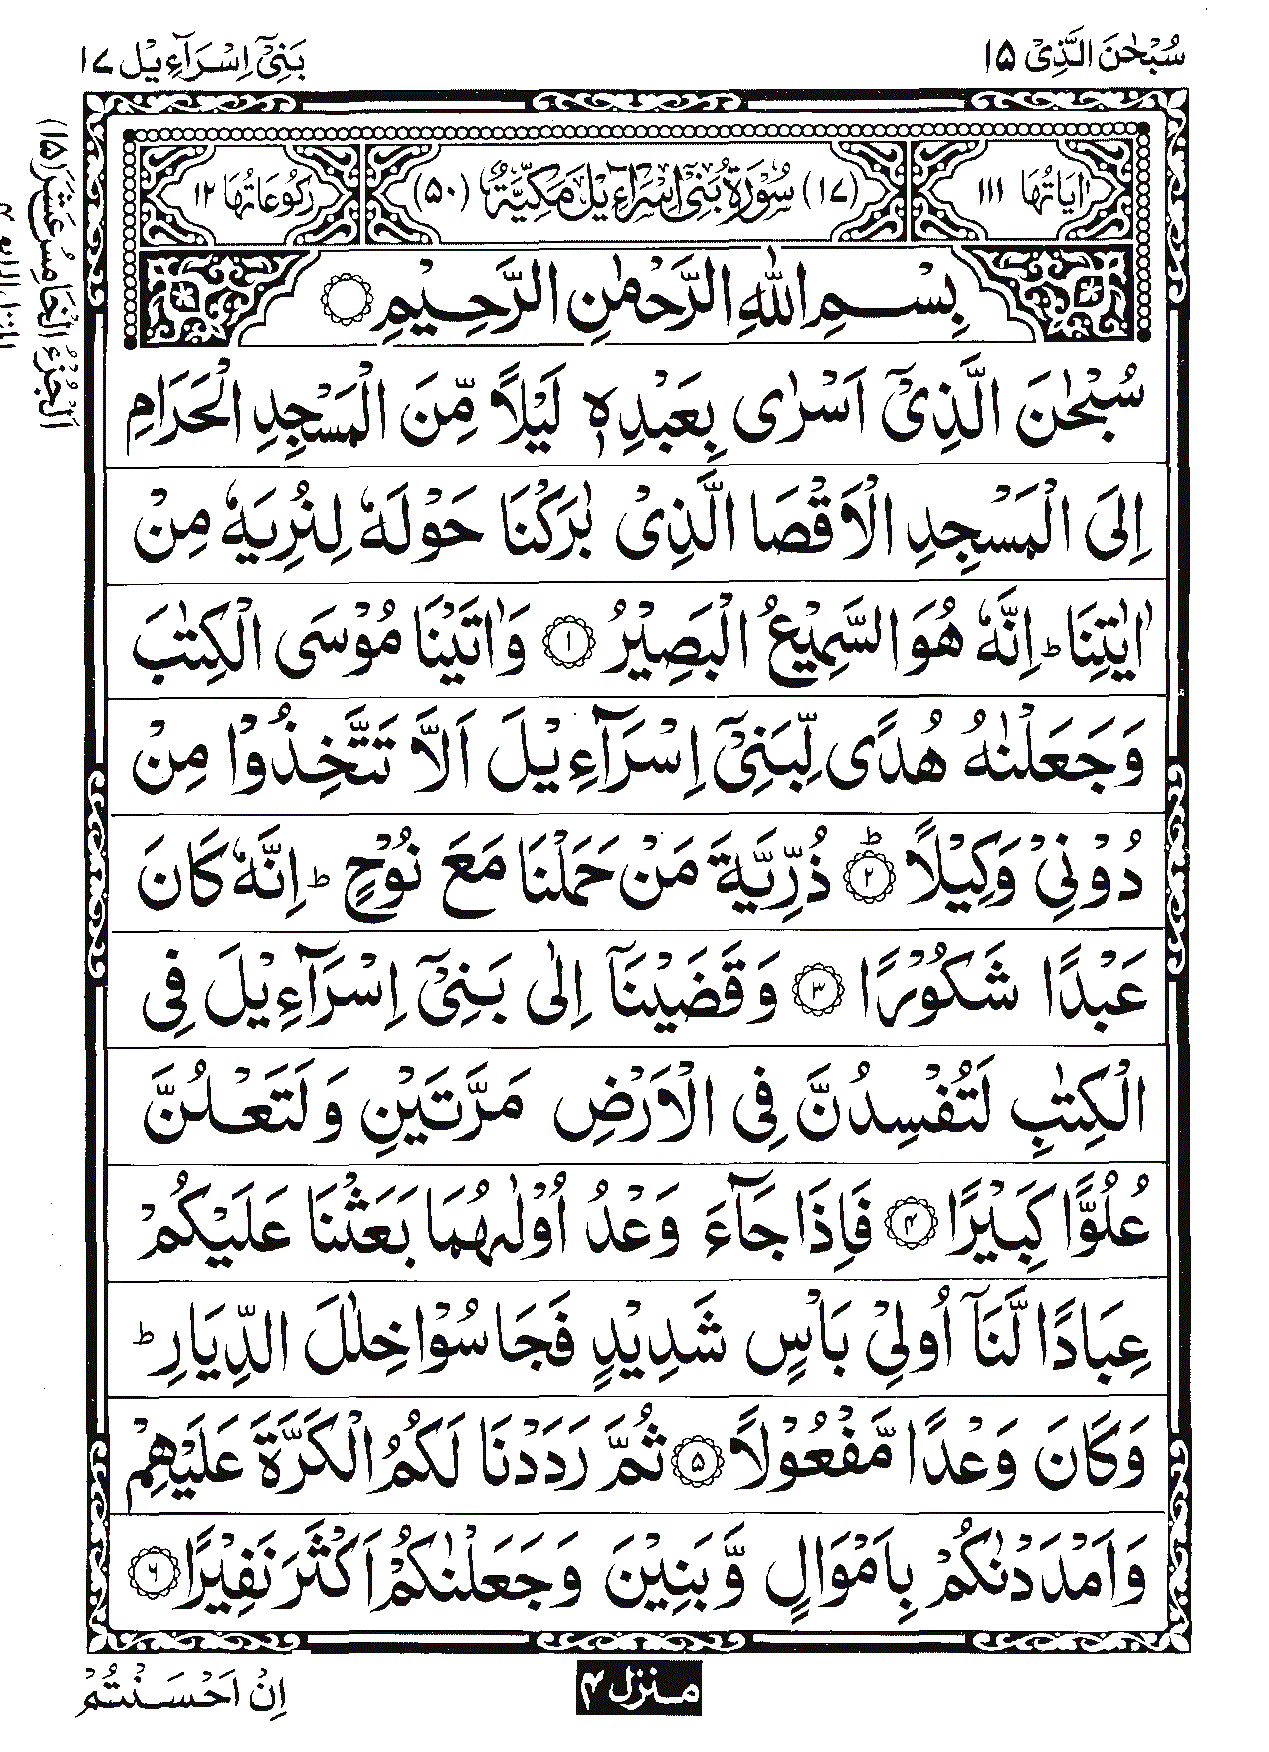 سُبْحٰنَ الَّذِیْ ۱۵
بَنِیْۤ اِسْرَآءِیْل ۱۷
اَلْجُزْءُ الْخَامِسُ عَشَرَ (۱۵)
اٰیَاتُهَا ۱۱۱
(۱۷) سُوْرَةُ بَنِیْۤ اِسْرَآءِیْلَ مَكِّیَّةٌ (۵۰)
رُكُوْعَاتُهَا ۱۲
بِسْمِ اللّٰهِ الرَّحْمٰنِ الرَّحِیْمِ
سُبْحٰنَ الَّذِیْۤ اَسْرٰی بِعَبْدِهٖ لَیْلًا مِّنَ الْمَسْجِدِ الْحَرَامِ
اِلَی الْمَسْجِدِ الْاَقْصَا الَّذِیْ بٰرَكْنَا حَوْلَهٗ لِنُرِیَهٗ مِنْ
اٰیٰتِنَا ؕ اِنَّهٗ هُوَ السَّمِیْعُ الْبَصِیْرُ ۱ وَاٰتَیْنَا مُوْسَی الْكِتٰبَ
وَجَعَلْنٰهُ هُدًی لِّبَنِیْۤ اِسْرَآءِیْلَ اَلَّا تَتَّخِذُوْا مِنْ
دُوْنِیْ وَكِیْلًا ۲ؕ ذُرِّیَّةَ مَنْ حَمَلْنَا مَعَ نُوْحٍ ؕ اِنَّهٗ كَانَ
عَبْدًا شَكُوْرًا ۳ وَقَضَیْنَاۤ اِلٰی بَنِیْۤ اِسْرَآءِیْلَ فِی
الْكِتٰبِ لَتُفْسِدُنَّ فِی الْاَرْضِ مَرَّتَیْنِ وَلَتَعْلُنَّ
عُلُوًّا كَبِیْرًا ۴ فَاِذَا جَآءَ وَعْدُ اُوْلٰىهُمَا بَعَثْنَا عَلَیْكُمْ
عِبَادًا لَّنَاۤ اُولِیْ بَاْسٍ شَدِیْدٍ فَجَاسُوْا خِلٰلَ الدِّیَارِ ؕ
وَكَانَ وَعْدًا مَّفْعُوْلًا ۵ ثُمَّ رَدَدْنَا لَكُمُ الْكَرَّةَ عَلَیْهِمْ
وَاَمْدَدْنٰكُمْ بِاَمْوَالٍ وَّبَنِیْنَ وَجَعَلْنٰكُمْ اَكْثَرَ نَفِیْرًا ۶
منزل ۴
اِنْ اَحْسَنْتُمْ